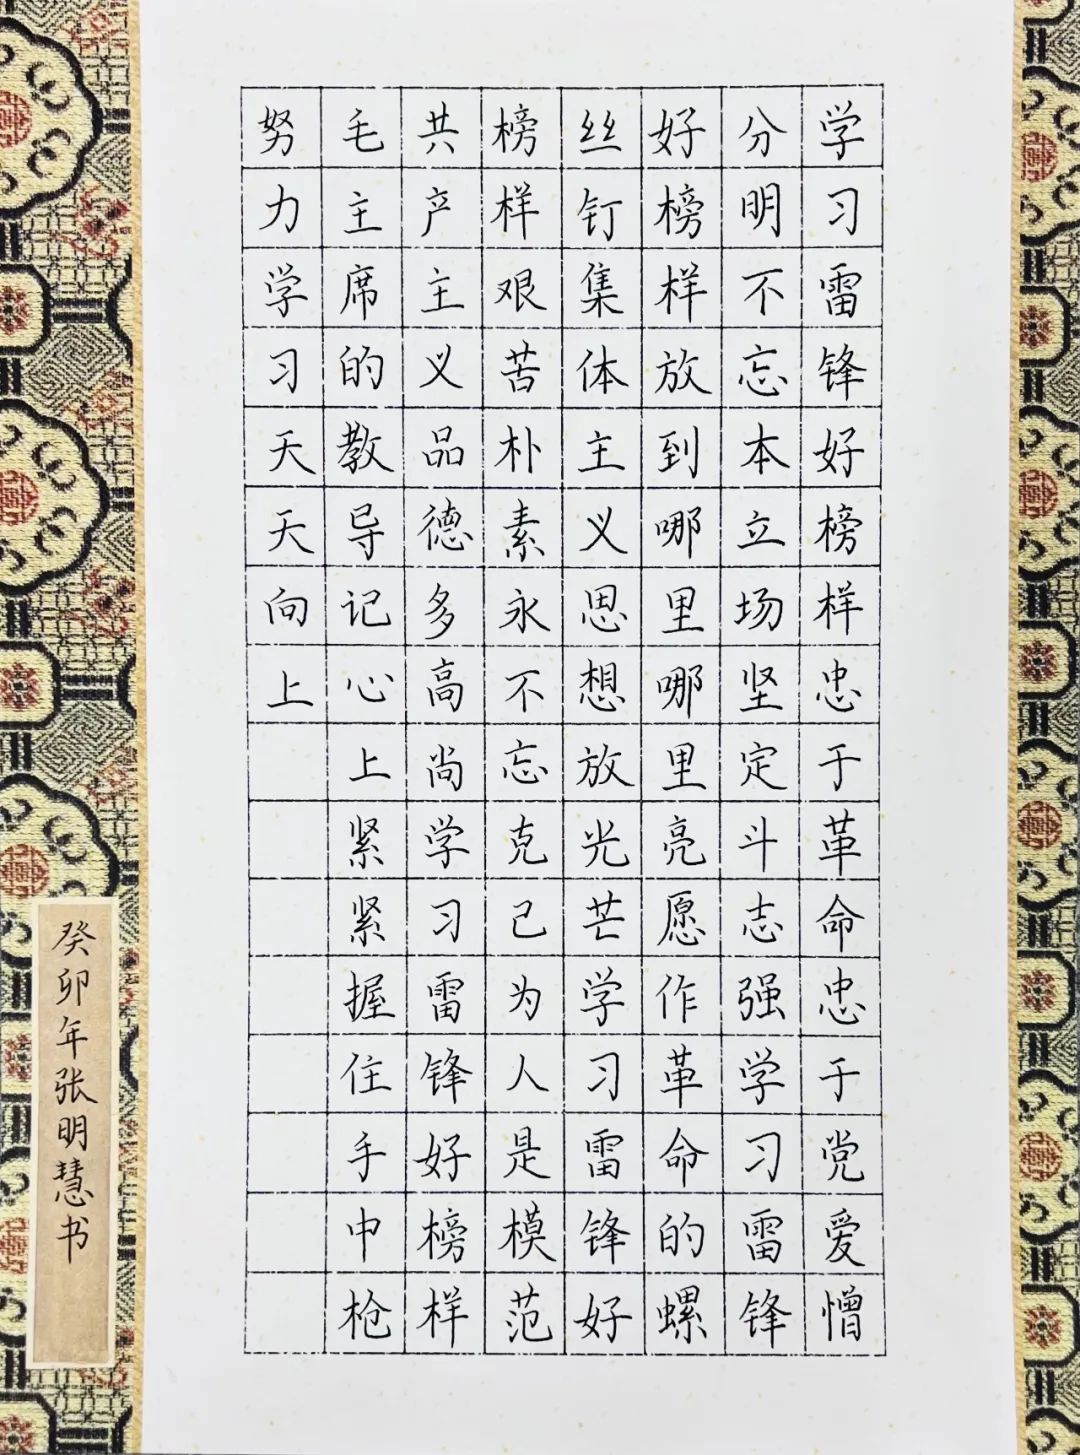 学习雷锋好榜样忠于革命忠于党爱憎
分明不忘本立场坚定斗志强学习雷锋
好榜样放到哪里哪里亮愿作革命的螺
丝钉集体主义思想放光芒学习雷锋好
榜样艰苦朴素永不忘克己为人是模范
共产主义品德多高尚学习雷锋好榜样
毛主席的教导记心上紧紧握住手中枪
努力学习天天向上
癸卯年张明慧书